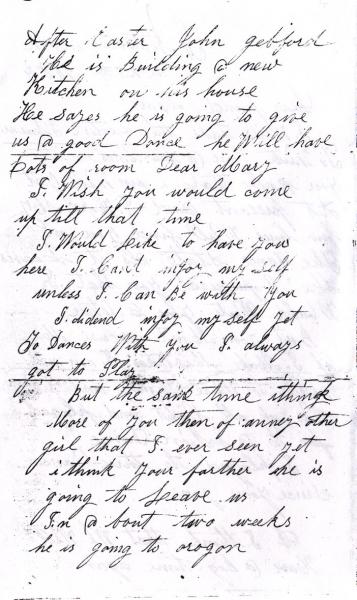 After Easter John gebford
He is Building a new
Kitchen on his house
He sayes he is going to give
us a good Dance he Will have
Lots of room Dear Mary
I Wish you would come
up till that time
I Would Like to have you
here I Cant injoy my self
unless I Can Be with You
I didend injoy my self yet
To Dances With you I always
got to Play
But the same time i think
More of you then of anney other
girl that I ever seen yet
i think your farther he is
going to Leave us
In a bout two weeks
he is going to orogon